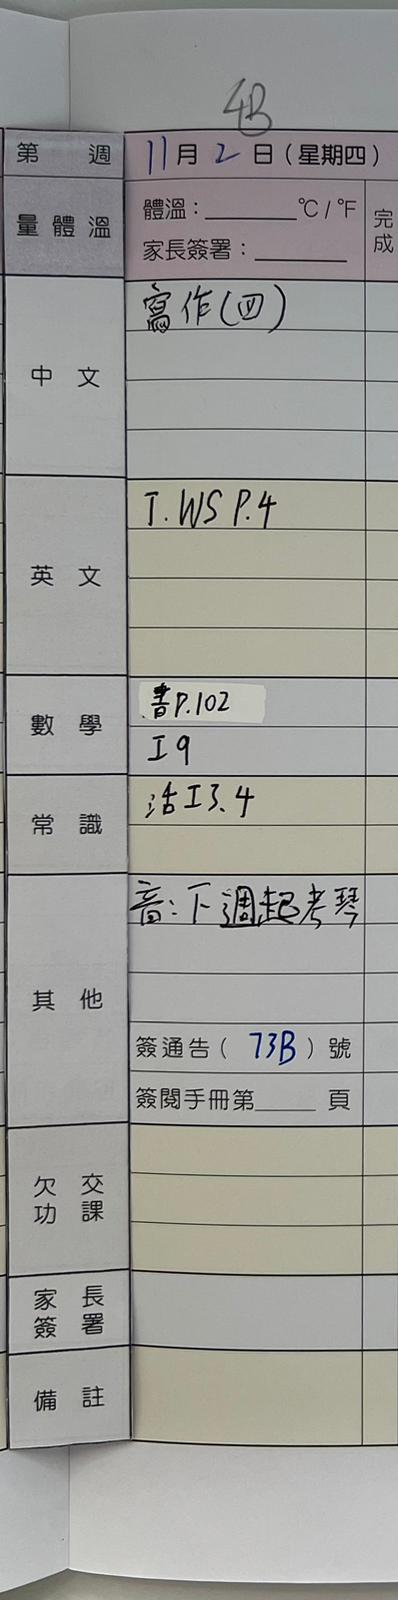 4B
第 週 11月2日(星期四)
量體溫 體溫：______℃/℉ 完成
家長簽署：______
中文 寫作(四)
英文 T. WS P.4
數學 書P.102
I9
常識 活I3.4
其他 音：下週起考琴
簽通告(73B)號
簽閱手冊第____頁
欠交功課
家長簽署
備註